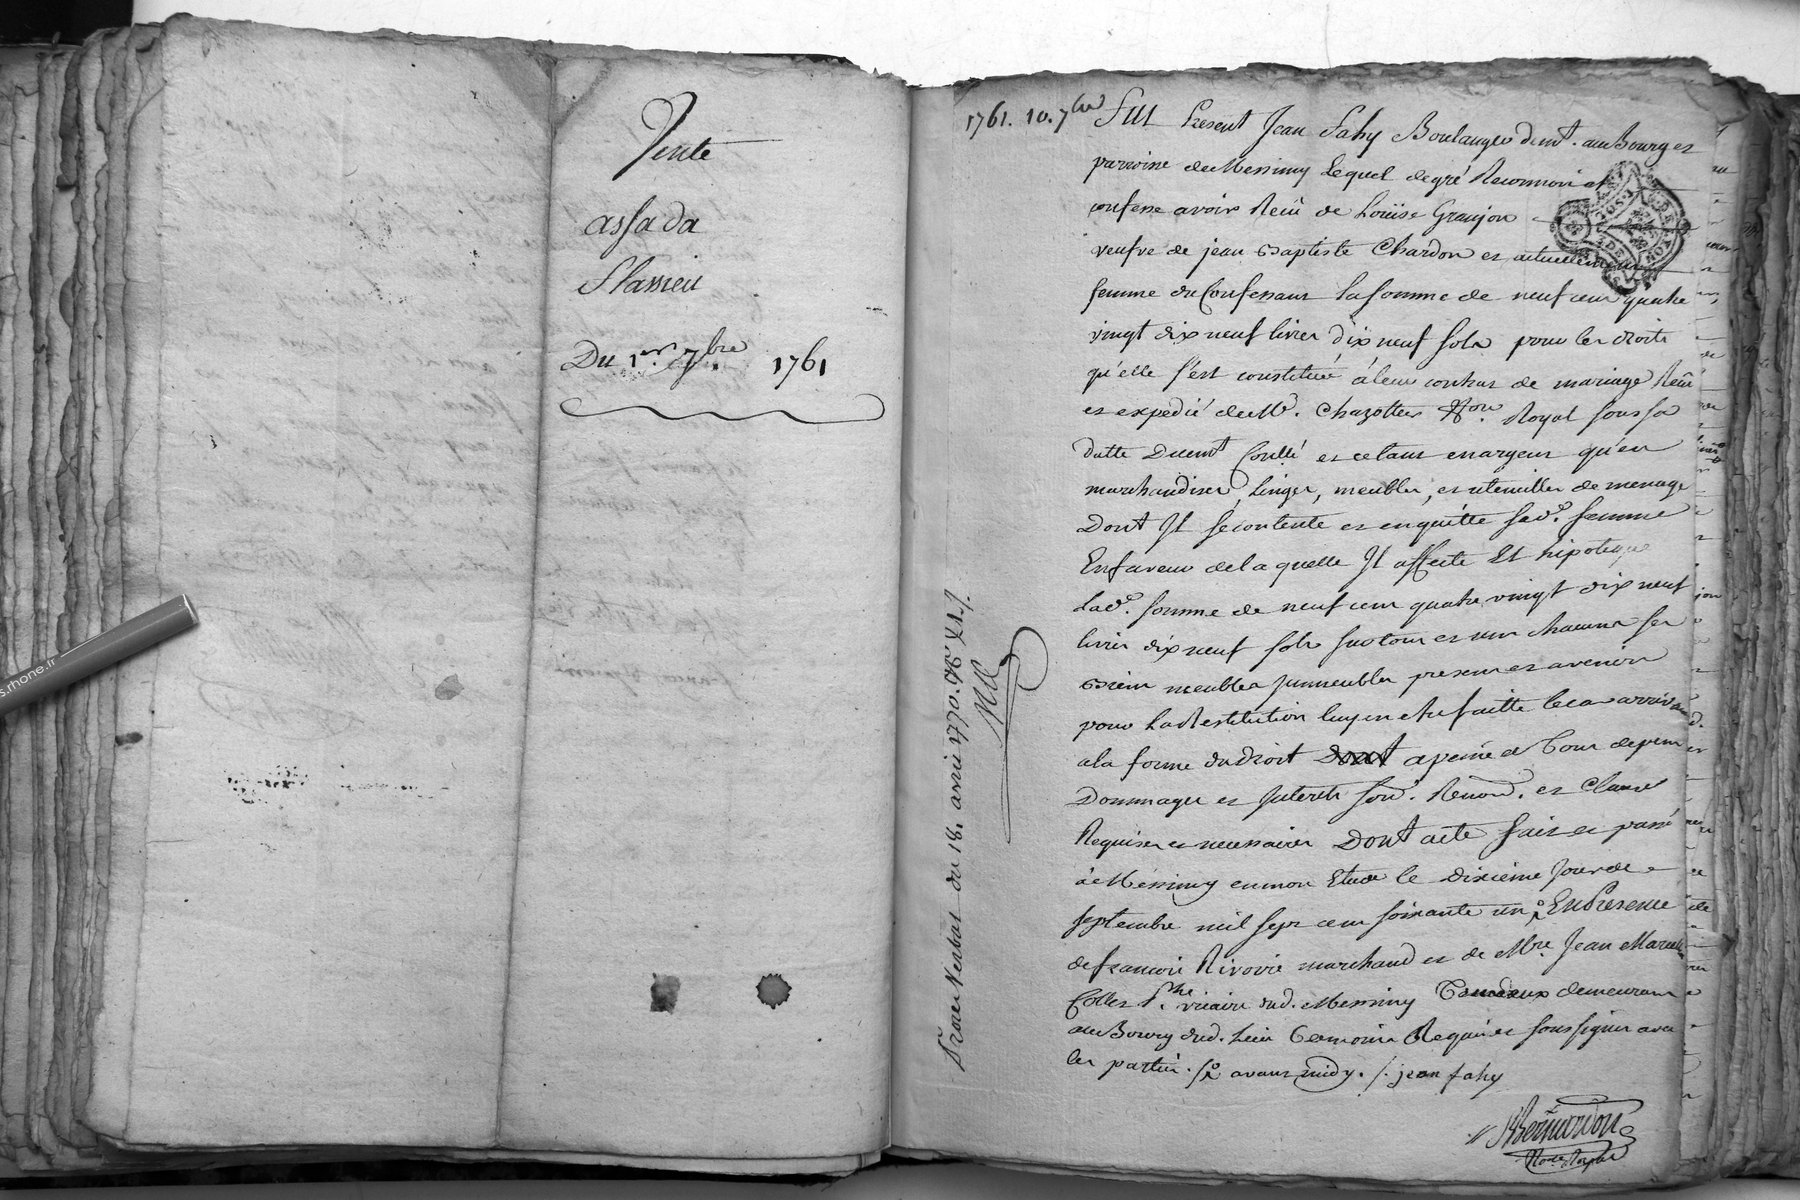 Vente
assada
Flassieu
Du 1er 7bre 1761
s.rhone.fr
1761. 10. 7bre
Fut Present Jean Fahy Boulanger demt. au Bourg et
parroisse de Messimy Lequel de gré Reconnoit et
confesse avoir Reçû de Loüise Granjon
veufve de jean Baptiste Chardon et actuellement
femme du Confessant la somme de neuf cent quatre
vingt dix neuf livres dix neuf sols pour les droits
qu'elle s'est constitué à leur contrat de mariage Reçû
et expedié de Me. Chazottes Nore. Royal sous sa
datte Duemt Conllé et ce tant en argent qu'en
marchandises, Linges, meubles, et utensilles de menage
Dont Il se contente et en quitte sade. femme
En faveur de la quelle Il affecte Et hipoteque
lade. somme de neuf cent quatre vingt dix neuf
livres dix neuf sols sur tous et un chacuns ses
Biens meubles Immeubles presents et avenir
pour La Restitution luy en etre faitte le cas arrivant
a la forme du droit dont a peine de tous depens
Dommages et Interets Renond. et Clauses
Requises et necessaires Dont acte fait et passé
à Messimy en mon Etude le dixieme Jour de
septembre mil sept cent soixante un En Presence
de françois Rivoire marchand et de Mre. Jean
Collet vicaire dud. Messimy Tous deux demeurant
au Bourg dud. Lieu temoins Requis et soussignés avec
les parties. avant midy. /. jean fahy
Bernardon
Nore Royal
Procés Verbal du 18. avril 1770.